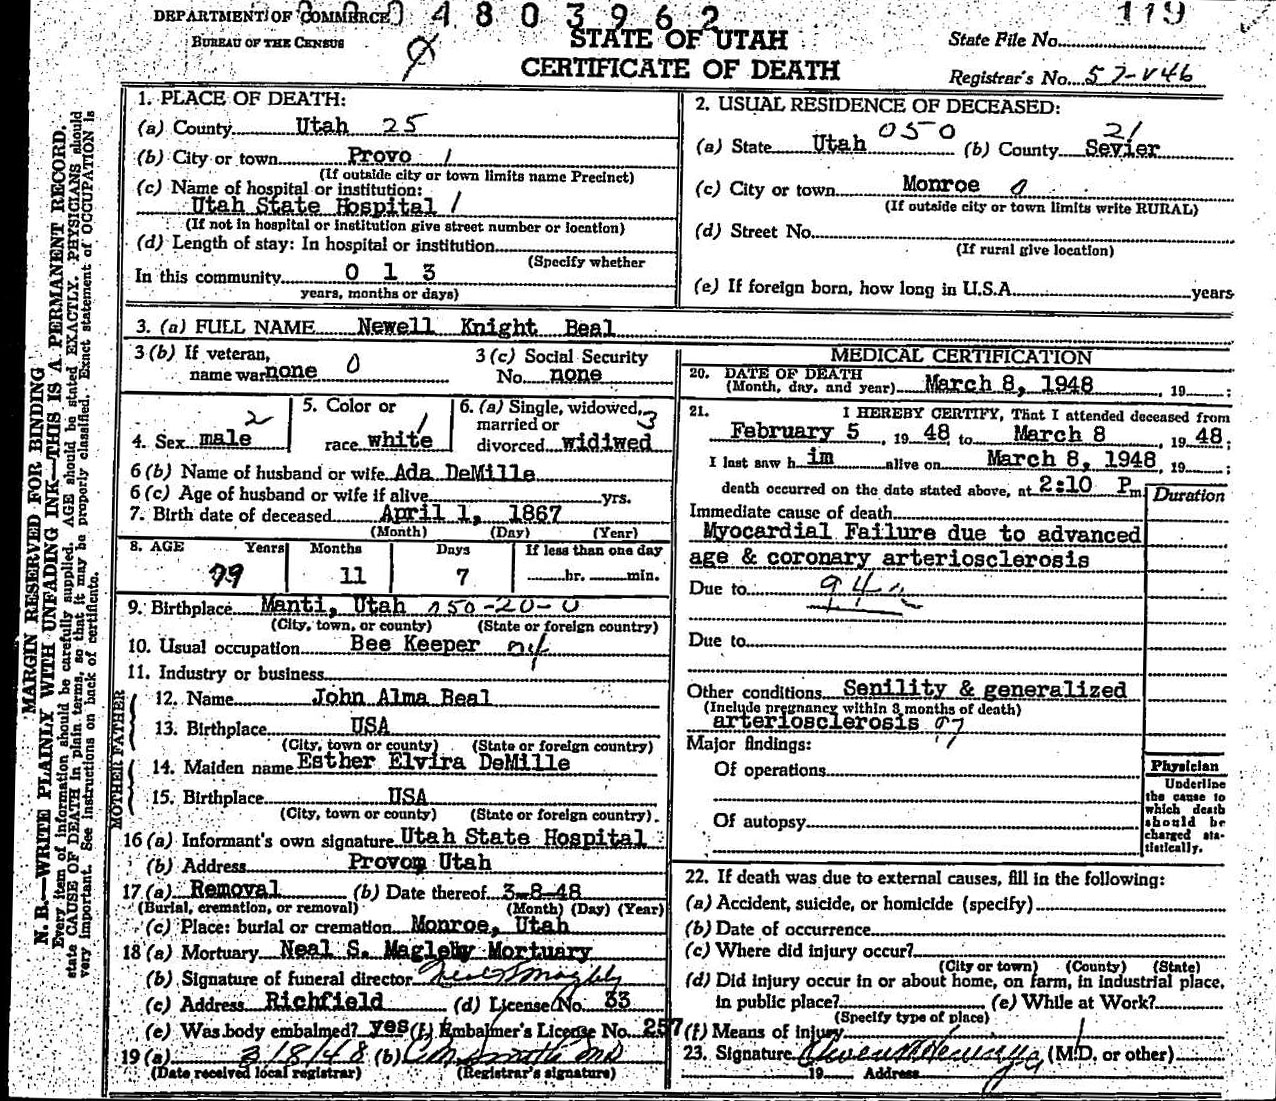 DEPARTMENT OF COMMERCE
BUREAU OF THE CENSUS
4803962
119
STATE OF UTAH
CERTIFICATE OF DEATH
State File No.
Registrar's No. 57-V46
MARGIN RESERVED FOR BINDING
N. B.—WRITE PLAINLY WITH UNFADING INK—THIS IS A PERMANENT RECORD.
Every item of information should be carefully supplied. AGE should be stated EXACTLY. PHYSICIANS should
state CAUSE OF DEATH in plain terms, so that it may be properly classified. Exact statement of OCCUPATION is
very important. See instructions on back of certificate.
1. PLACE OF DEATH:
(a) County Utah 25
(b) City or town Provo 1
(If outside city or town limits name Precinct)
(c) Name of hospital or institution:
Utah State Hospital 1
(If not in hospital or institution give street number or location)
(d) Length of stay: In hospital or institution
(Specify whether
In this community 0 1 3
years, months or days)
2. USUAL RESIDENCE OF DECEASED:
(a) State Utah 050 (b) County Sevier 21
(c) City or town Monroe 0
(If outside city or town limits write RURAL)
(d) Street No.
(If rural give location)
(e) If foreign born, how long in U.S.A. years
3. (a) FULL NAME Newell Knight Beal
3 (b) If veteran,
name war none 0
3 (c) Social Security
No. none
4. Sex male 2
5. Color or
race white 1
6. (a) Single, widowed,
married or
divorced widiwed 3
6 (b) Name of husband or wife Ada DeMille
6 (c) Age of husband or wife if alive yrs.
7. Birth date of deceased April 1, 1867
(Month) (Day) (Year)
8. AGE Years Months Days If less than one day
79 11 7 hr. min.
9. Birthplace Manti, Utah 050-20-0
(City, town, or county) (State or foreign country)
10. Usual occupation Bee Keeper
11. Industry or business
FATHER
12. Name John Alma Beal
13. Birthplace USA
(City, town or county) (State or foreign country)
MOTHER
14. Maiden name Esther Elvira DeMille
15. Birthplace USA
(City, town or county) (State or foreign country).
16 (a) Informant's own signature Utah State Hospital
(b) Address Provom Utah
17 (a) Removal (b) Date thereof 3-8-48
(Burial, cremation, or removal) (Month) (Day) (Year)
(c) Place: burial or cremation Monroe, Utah
18 (a) Mortuary Neal S. Magleby Mortuary
(b) Signature of funeral director Neal S Magleby
(c) Address Richfield (d) License No. 33
(e) Was body embalmed? yes (f) Embalmer's License No. 257
19 (a) 3/8/48 (b)
(Date received local registrar) (Registrar's signature)
MEDICAL CERTIFICATION
20. DATE OF DEATH
(Month, day, and year) March 8, 1948, 19 ;
21. I HEREBY CERTIFY, That I attended deceased from
February 5, 19 48 to March 8, 19 48;
I last saw h im alive on March 8, 1948, 19 ;
death occurred on the date stated above, at 2:10 P m.
Duration
Immediate cause of death
Myocardial Failure due to advanced
age & coronary arteriosclerosis
Due to 94a
Due to
Other conditions Senility & generalized
(Include pregnancy within 3 months of death)
arteriosclerosis 97
Major findings:
Of operations
Of autopsy
Physician
Underline
the cause to
which death
should be
charged sta-
tistically.
22. If death was due to external causes, fill in the following:
(a) Accident, suicide, or homicide (specify)
(b) Date of occurrence
(c) Where did injury occur?
(City or town) (County) (State)
(d) Did injury occur in or about home, on farm, in industrial place,
in public place? (e) While at Work?
(Specify type of place)
(f) Means of injury
23. Signature (M.D. or other)
19 Address